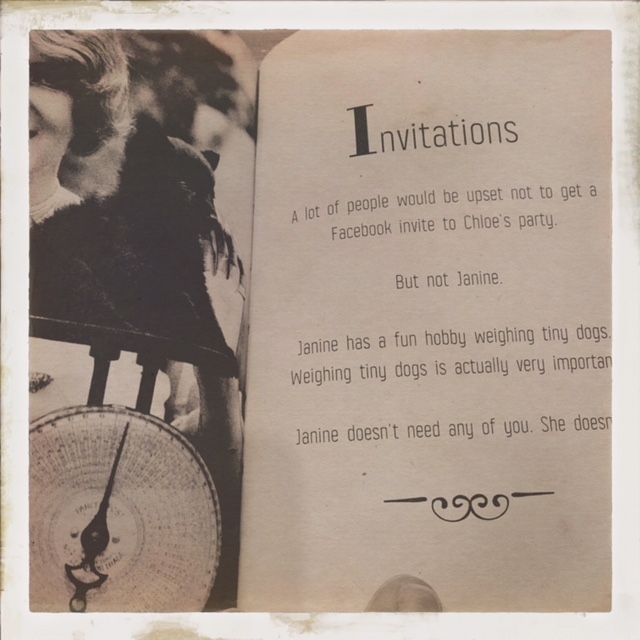 Invitations
A lot of people would be upset not to get a
Facebook invite to Chloe's party.
But not Janine.
Janine has a fun hobby weighing tiny dogs.
Weighing tiny dogs is actually very importan
Janine doesn't need any of you. She doesn